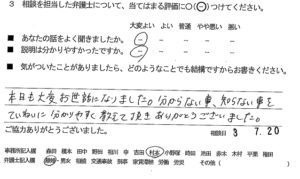 3 相談を担当した弁護士について、当てはまる評価に○(⊖)つけてください。
大変よい よい 普通 やや悪い 悪い
■ あなたの話をよく聞きましたか。
■ 説明は分かりやすかったですか。
■ 気がついたことがありましたら、どのようなことでも結構ですからお書きください。
本日も大変お世話になりました。分からない事、知らない事を
ていねいに分かりやすく教えて頂きありがとうございました。
ご協力ありがとうございました。
相談日 3 7.20
事務所記入欄 森田 榎本 田中 野田 相川 幸 吉田 村本 小野塚 時田 池田 赤木 木村 平栗 権田
弁護士記入欄 離婚・男女 相続 交通事故 刑事 家賃滞納 労働 労災 その他(